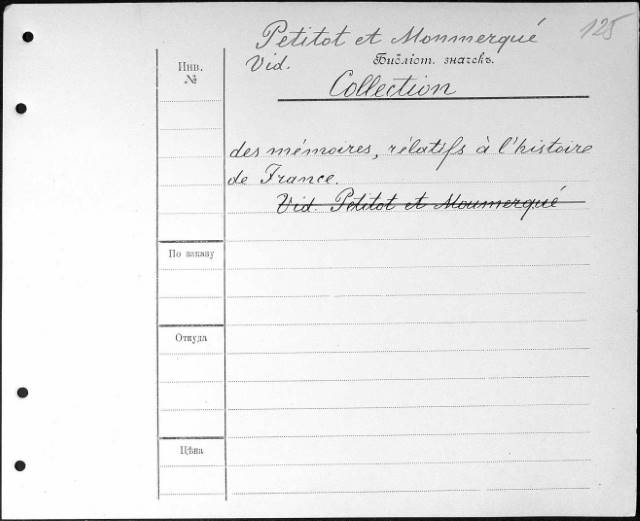 125
Petitot et Monmerqué
Vid.
Библіот. значекъ.
Collection
des mémoires, rélatifs à l'histoire
de France.
Vid. Petitot et Moumerqué
Инв.
№
По какому
Откуда
Цѣна